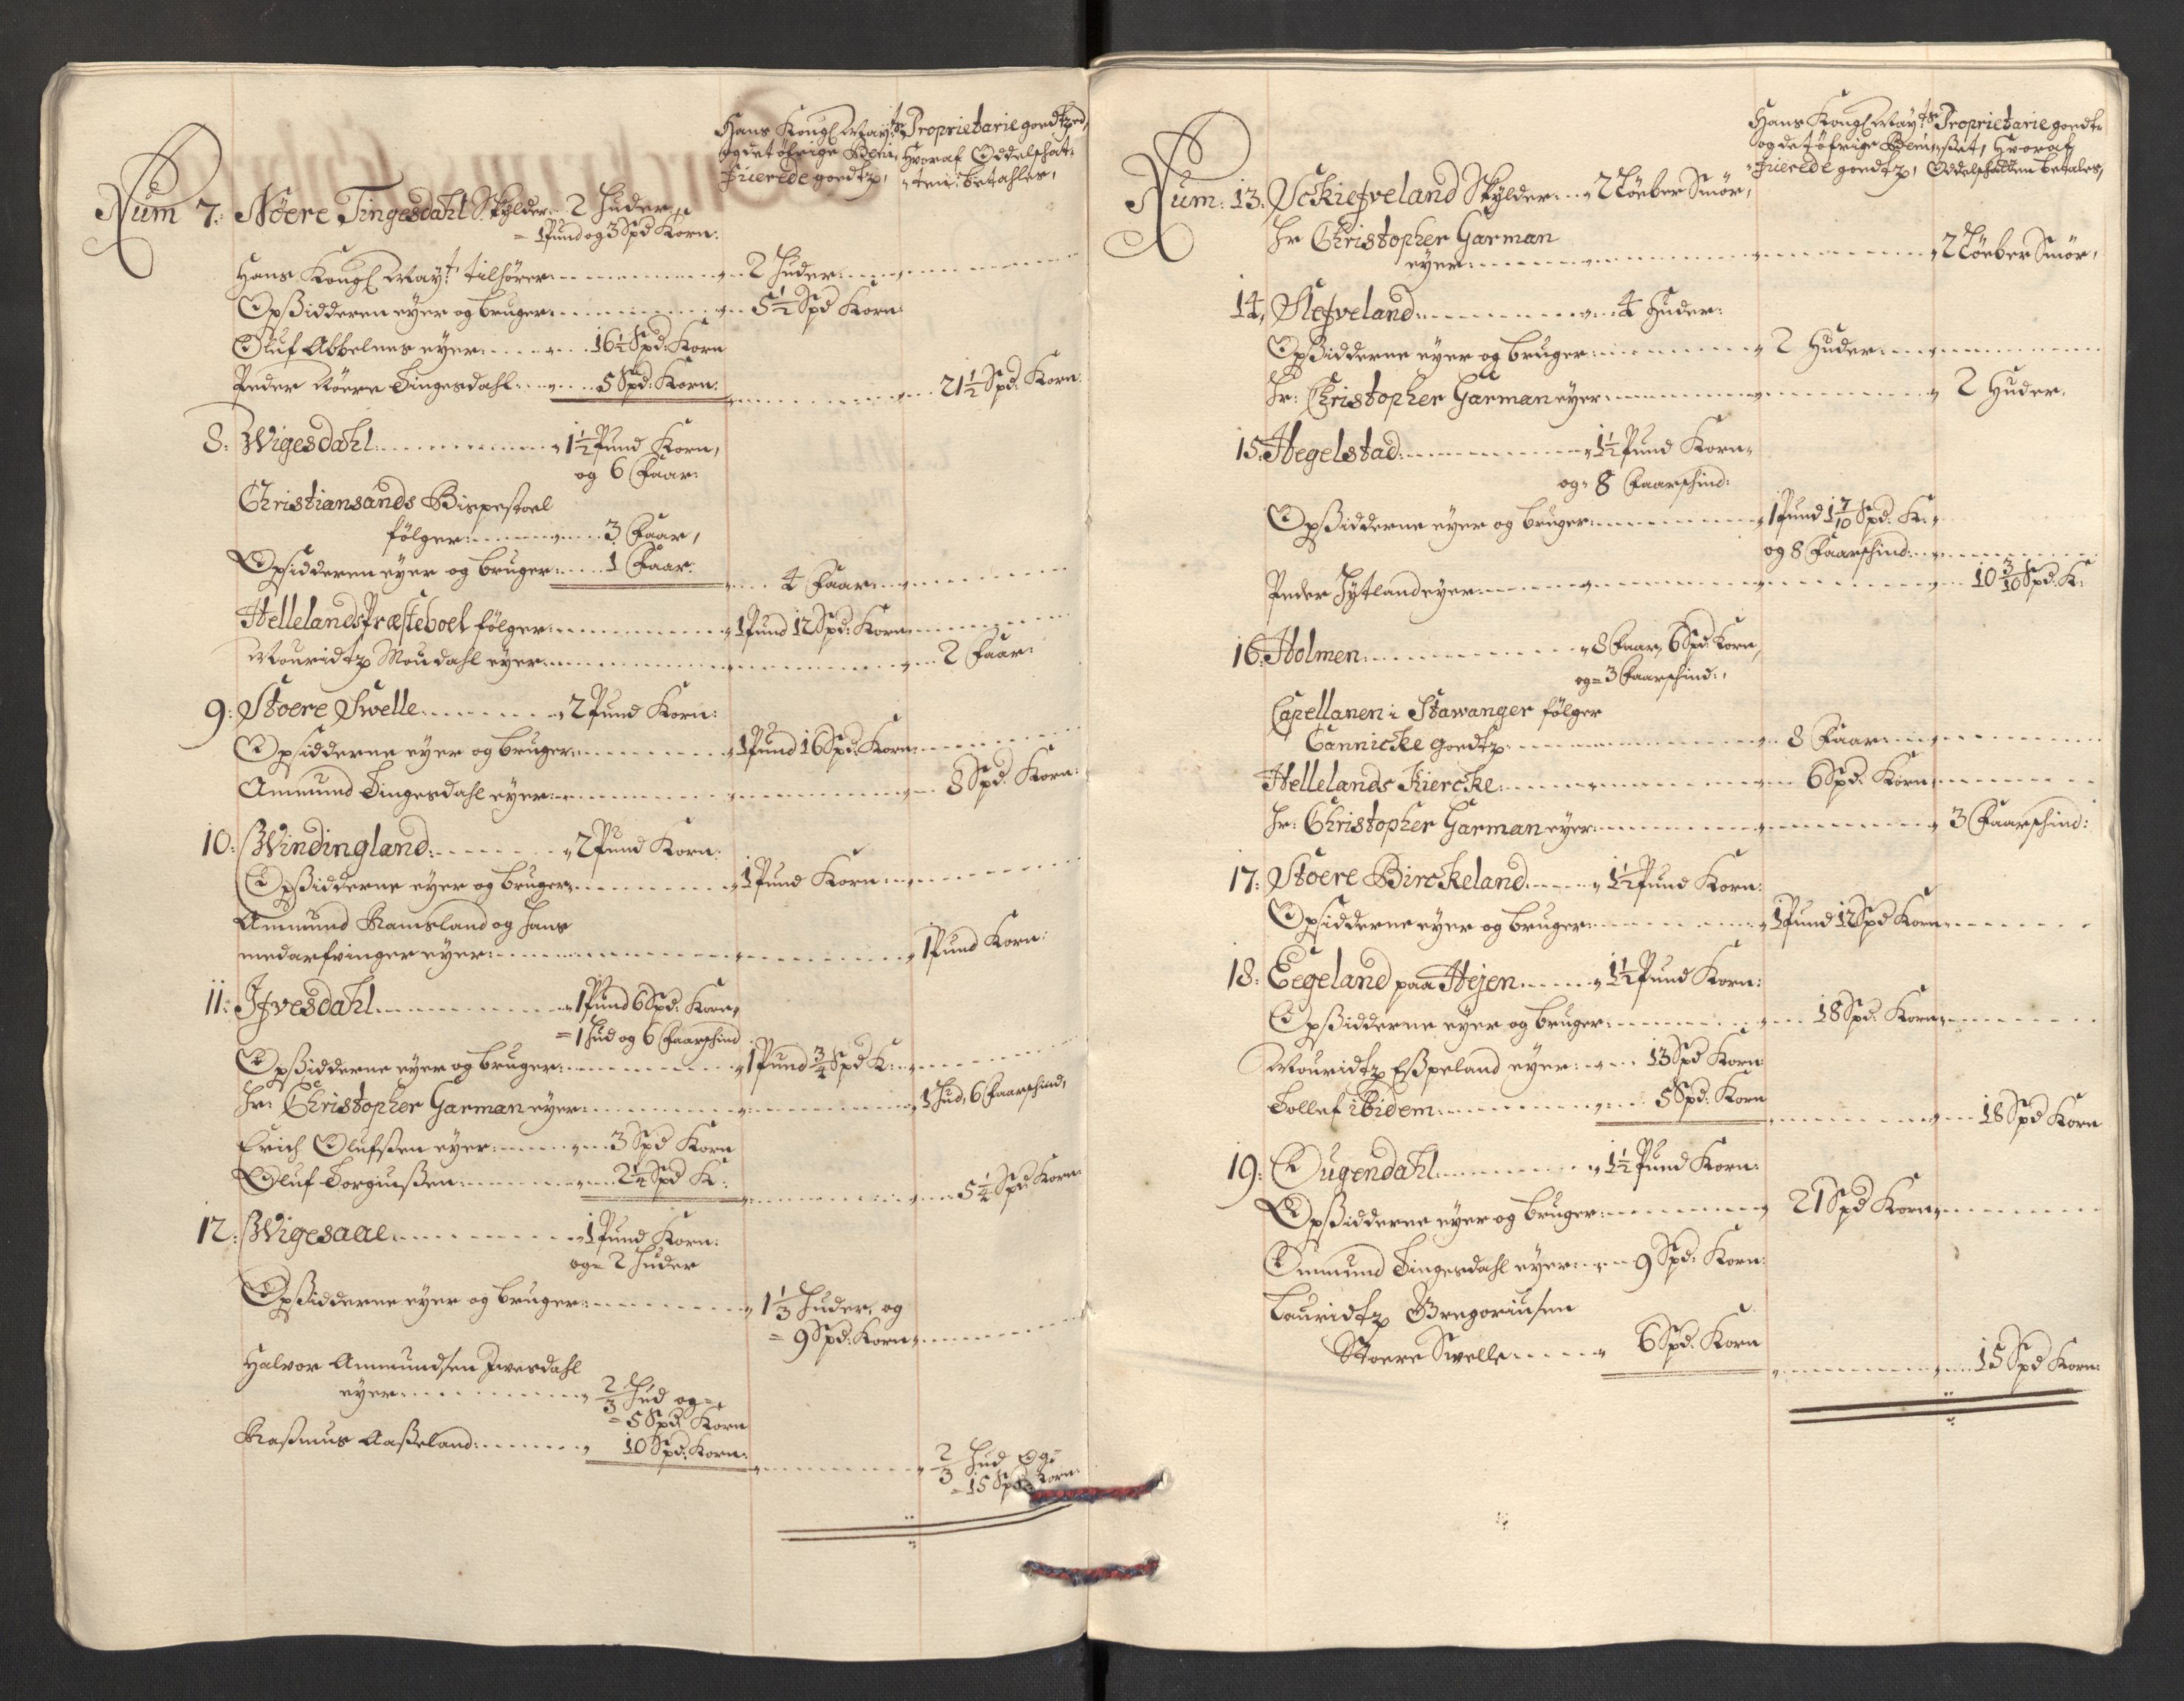 Hans Kongl May.ts Proprietarie goedtz
og det öfrige Beni, Hvoraf Oddelschat-
ficerede goedtz, ten: betahles,
Num 7: Nöere Tingesdahl Skylder 2 Huder
= 1 Pund og 3 Spd Korn:
Hans Kongl May.t tilhörer 2 Huder
Opsidderen eyer og bruger 5 1/2 Spd Korn
Oluf Abbelnes eyer 16 1/2 Spd: Korn
Peder Nöere Tingesdahl 5 Spd: Korn: 21 1/2 Spd: Korn
8: Wigesdahl 1 1/2 Pund Korn,
og 6 Faar:
Christiansands Bispestoel
følger 3 Faar,
Opsidderen eyer og bruger 1 Faar: 4 Faar
Hellelands Præsteboel følger 1 Pund 12 Spd: Korn
Mouridtz Moudahl eyer 2 Faar:
9: Stoere Svelle 2 Pund Korn:
Opsidderne eyer og bruger 1 Pund 16 Spd: Korn
Ammund Tingesdahl eyer 8 Spd: Korn:
10: Windingland 2 Pund Korn:
Opsidderne eyer og bruger 1 Pund Korn
Ammund Ramsland og hans
medarfvinger eyer 1 Pund Korn:
11: Ifvesdahl 1 Pund 6 Spd: Korn,
= 1 Hud og 6 Faarschind
Opsidderne eyer og bruger 1 Pund 3/4 Spd K:
Hr: Christopher Garman eyer 1 Hud, 6 Faarschind,
Erich Olufsen eyer 3 Spd Korn
Oluf Torgiußen 2 1/4 Spd K: 5 1/4 Spd: Korn
12: Wigesaae 1 Pund Korn:
og= 2 Huder
Opsidderne eyer og bruger 1 1/3 Huder, og
= 9 Spd: Korn
Halvor Ammundsen Ivesdahl
eyer 2/3 Hud og=
= 5 Spd Korn
Rasmus Aaseland 10 Spd: Korn: 2/3 Hud Og=
= 15 Spd: Korn:
Hans Kongl May.ts Proprietarie goedt-
og det öfrige Beni- set, Hvoraf
ficerede goedtz, Oddelschatten betales,
Num: 13: Sckiefveland Skylder 2 Löeber Smör,
Hr Christopher Garman
eyer 2 Löeber Smör,
14, Slefveland 4 Huder:
Opsidderne eyer og bruger 2 Huder
Hr: Christopher Garman eyer 2 Huder.
15: Hegelstad 1 1/2 Pund Korn
og= 8 Faarschind:
Opsidderne eyer og bruger 1 Pund 1 7/10 Spd. K:
og 8 Faarschind
Peder Jytland eyer 10 3/10 Spd. K:
16: Holmen 8 Faar, 6 Spd: Korn,
og= 3 Faarschind:,
Capellanen i Stawanger følger
Cannicke goedtz 8 Faar
Hellelands Kiercke 6 Spd: Korn,
Hr: Christopher Garman eyer 3 Faarschind:
17: Stoere Birckeland 1 1/2 Pund Korn:
Opsidderne eyer og bruger 1 Pund 12 Spd Korn
18: Eegeland paa Hejen 1 1/2 Pund Korn:
Opsidderne eyer og bruger 18 Spd: Korn
Mouridtz Eßpeland eyer 13 Spd Korn
Tollef ibidem 5 Spd: Korn 18 Spd Korn
19: Ougendahl 1 1/2 Pund Korn:
Opsidderne eyer og bruger 21 Spd Korn
Ommund Tingesdahl eyer 9 Spd: Korn:
Lauridtz Gregoriusen
Stoere Swelle 6 Spd: Korn 15 Spd Korn: